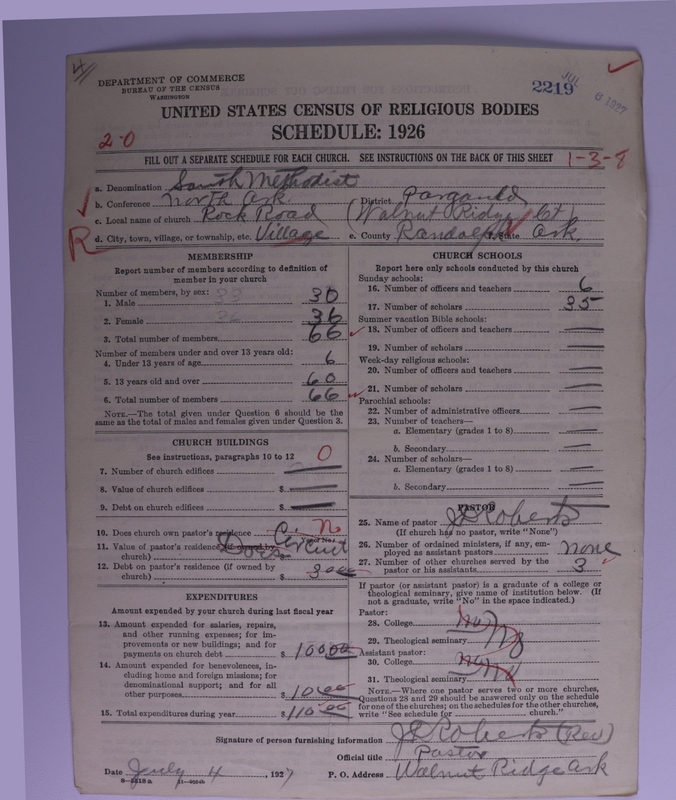 DEPARTMENT OF COMMERCE
BUREAU OF THE CENSUS
WASHINGTON
2219
JUL 6 1927
UNITED STATES CENSUS OF RELIGIOUS BODIES
SCHEDULE: 1926
2-0
FILL OUT A SEPARATE SCHEDULE FOR EACH CHURCH. SEE INSTRUCTIONS ON THE BACK OF THIS SHEET
1-3-8
a. Denomination South Methodist
b. Conference North Ark. District Paragould
c. Local name of church Rock Road (Walnut Ridge Ct
R
d. City, town, village, or township, etc. Village e. County Randolph f. State Ark.
MEMBERSHIP
Report number of members according to definition of member in your church
Number of members, by sex:
1. Male 30
2. Female 36
3. Total number of members 66
Number of members under and over 13 years old:
4. Under 13 years of age 6
5. 13 years old and over 60
6. Total number of members 66
NOTE.—The total given under Question 6 should be the same as the total of males and females given under Question 3.
CHURCH BUILDINGS
See instructions, paragraphs 10 to 12 0
7. Number of church edifices
8. Value of church edifices $
9. Debt on church edifices $
10. Does church own pastor's residence No
11. Value of pastor's residence (if owned by church) Circuit
12. Debt on pastor's residence (if owned by church) $
EXPENDITURES
Amount expended by your church during last fiscal year
13. Amount expended for salaries, repairs, and other running expenses; for improvements or new buildings; and for payments on church debt $ 100.00
14. Amount expended for benevolences, including home and foreign missions; for denominational support; and for all other purposes $ 10.00
15. Total expenditures during year $ 110.00
CHURCH SCHOOLS
Report here only schools conducted by this church
Sunday schools:
16. Number of officers and teachers 6
17. Number of scholars 35
Summer vacation Bible schools:
18. Number of officers and teachers
19. Number of scholars
Week-day religious schools:
20. Number of officers and teachers
21. Number of scholars
Parochial schools:
22. Number of administrative officers
23. Number of teachers—
a. Elementary (grades 1 to 8)
b. Secondary
24. Number of scholars—
a. Elementary (grades 1 to 8)
b. Secondary
PASTOR
25. Name of pastor J D Roberts
(If church has no pastor, write "None")
26. Number of ordained ministers, if any, employed as assistant pastors none
27. Number of other churches served by the pastor or his assistants 3
If pastor (or assistant pastor) is a graduate of a college or theological seminary, give name of institution below. (If not a graduate, write "No" in the space indicated.)
Pastor:
28. College No
29. Theological seminary No
Assistant pastor:
30. College
31. Theological seminary
NOTE.—Where one pastor serves two or more churches, Questions 28 and 29 should be answered only on the schedule for one of the churches; on the schedules for the other churches, write "See schedule for church."
Signature of person furnishing information J D Roberts (Rev)
Official title Pastor
Date July 4, 1927 P. O. Address Walnut Ridge Ark